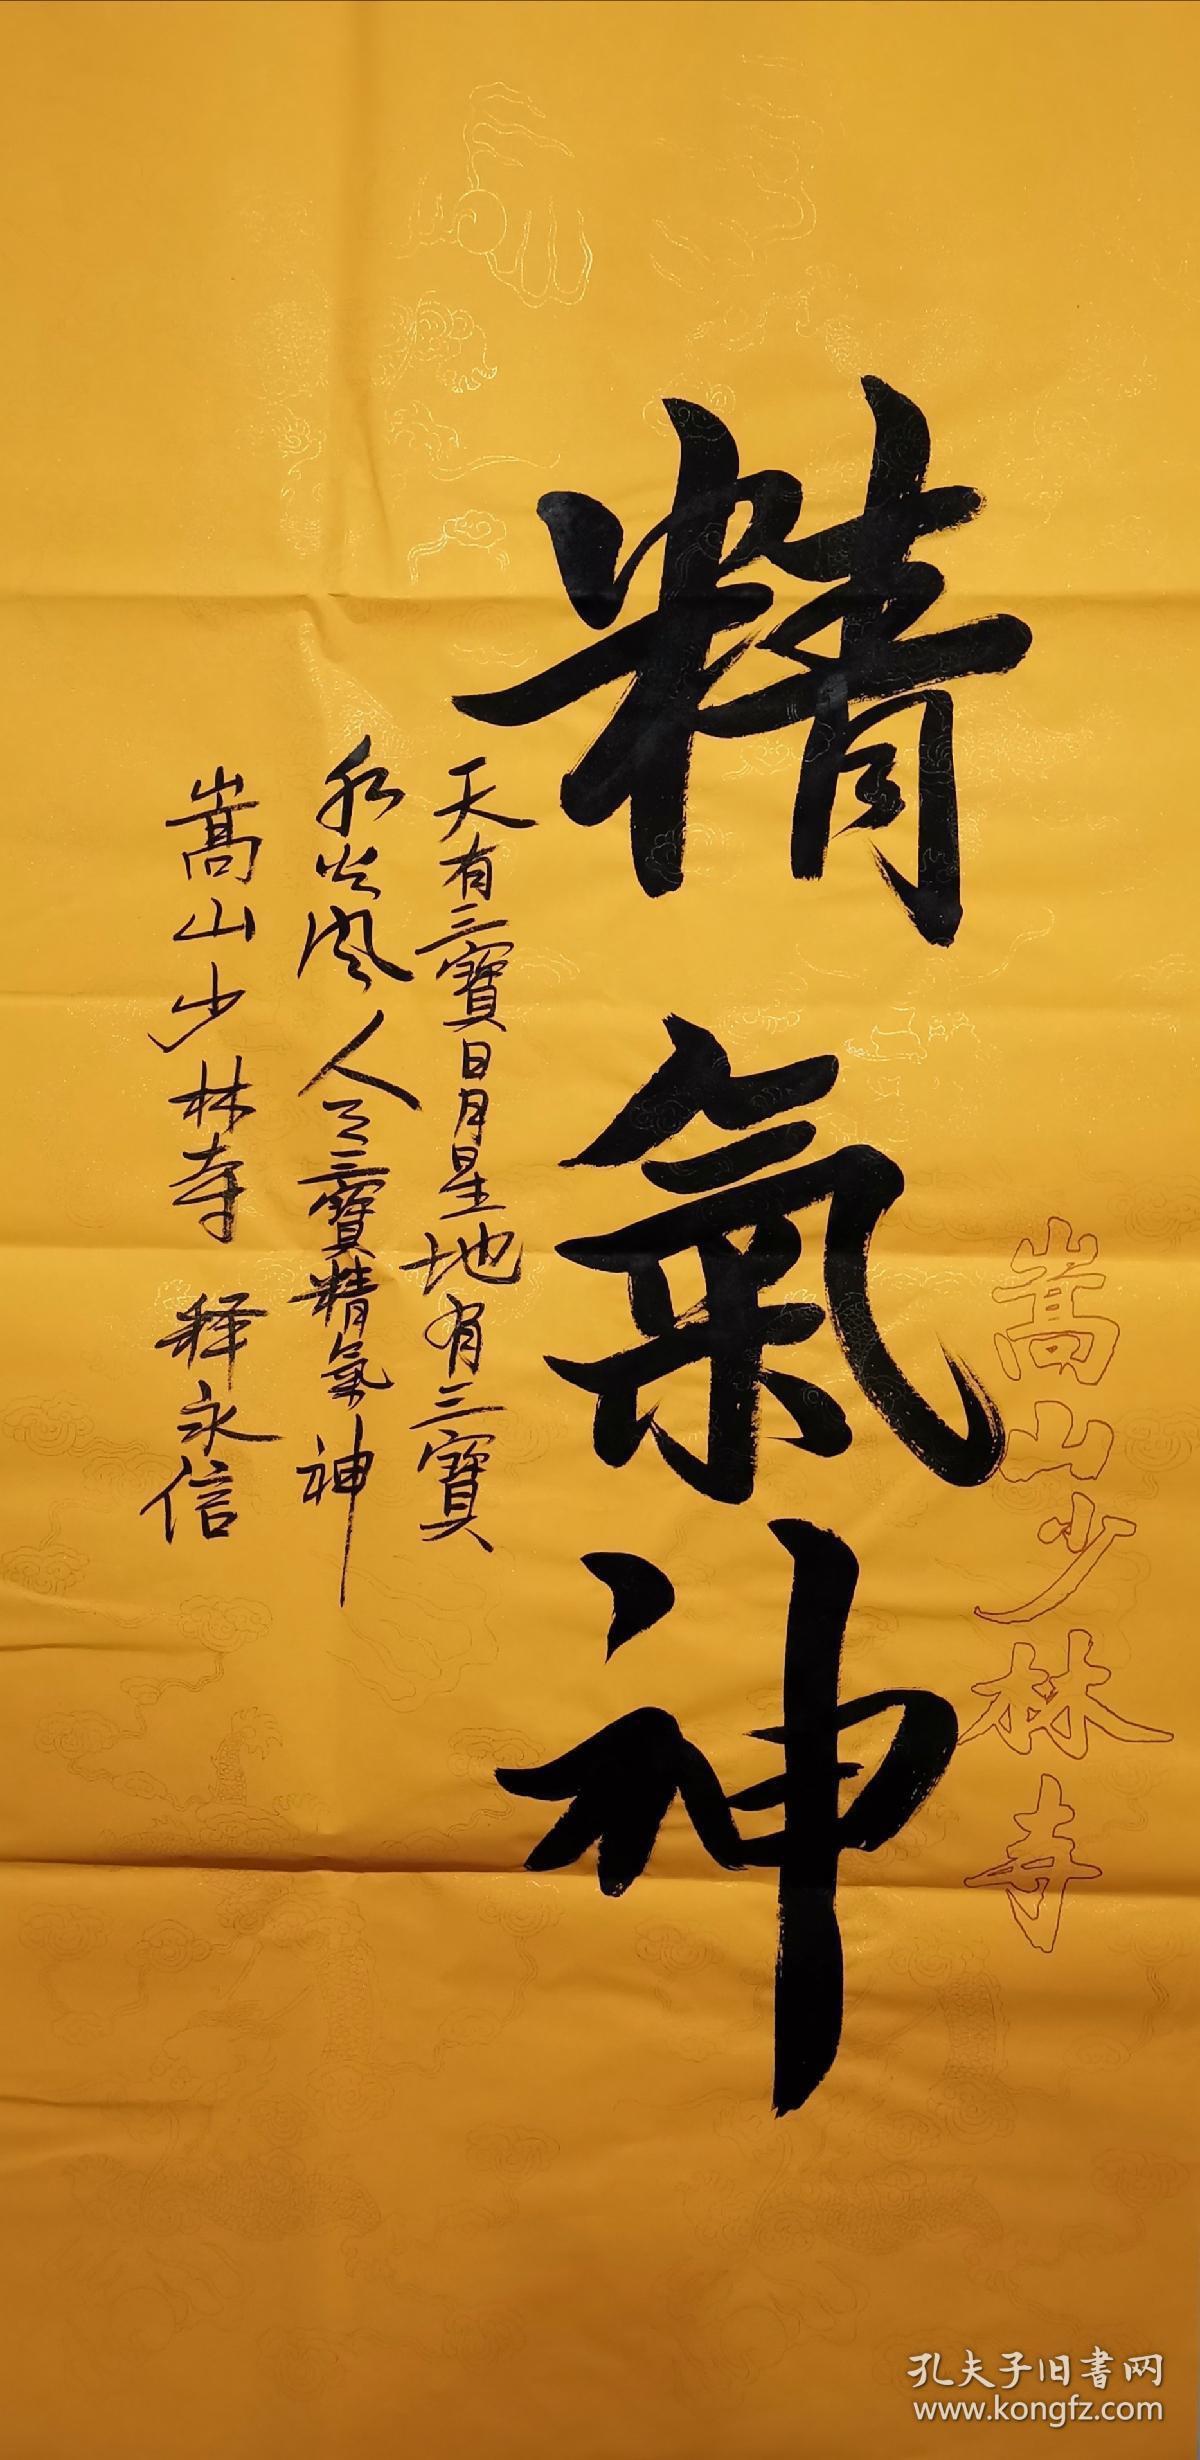 嵩山少林寺
精氣神
天有三寳日月星地有三寳
水火风人有三寳精氣神
嵩山少林寺 释永信
孔夫子旧書网
www.kongfz.com